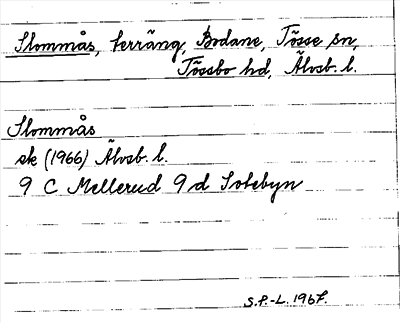 Slommås, terräng, Bodane, Tösse sn,
Tössbo hd, Älvsb. l.
Slommås
ek (1966) Älvsb. l.
9 C Mellerud 9 d Sotebyn
S.F.-L. 1967.